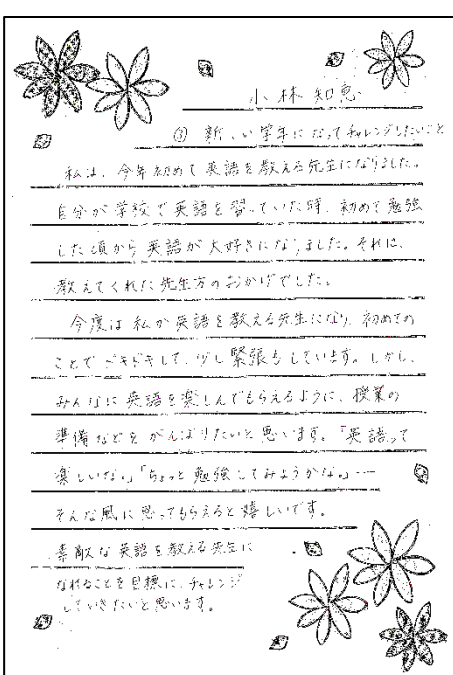 小林知恵
③ 新しい学年になってチャレンジしたいこと
私は、今年初めて英語を教える先生になりました。
自分が学校で英語を習っていた時、初めて勉強
した頃から英語が大好きになりました。それは、
教えてくれた先生方のおかげでした。
今度は私が英語を教える先生になり、初めての
ことでドキドキして、少し緊張もしています。しかし、
みんなに英語を楽しんでもらえるように、授業の
準備などをがんばりたいと思います。「英語って
楽しいな。」「ちょっと勉強してみようかな。」…
そんな風に思ってもらえると嬉しいです。
素敵な英語を教える先生に
なれることを目標に、チャレンジ
していきたいと思います。